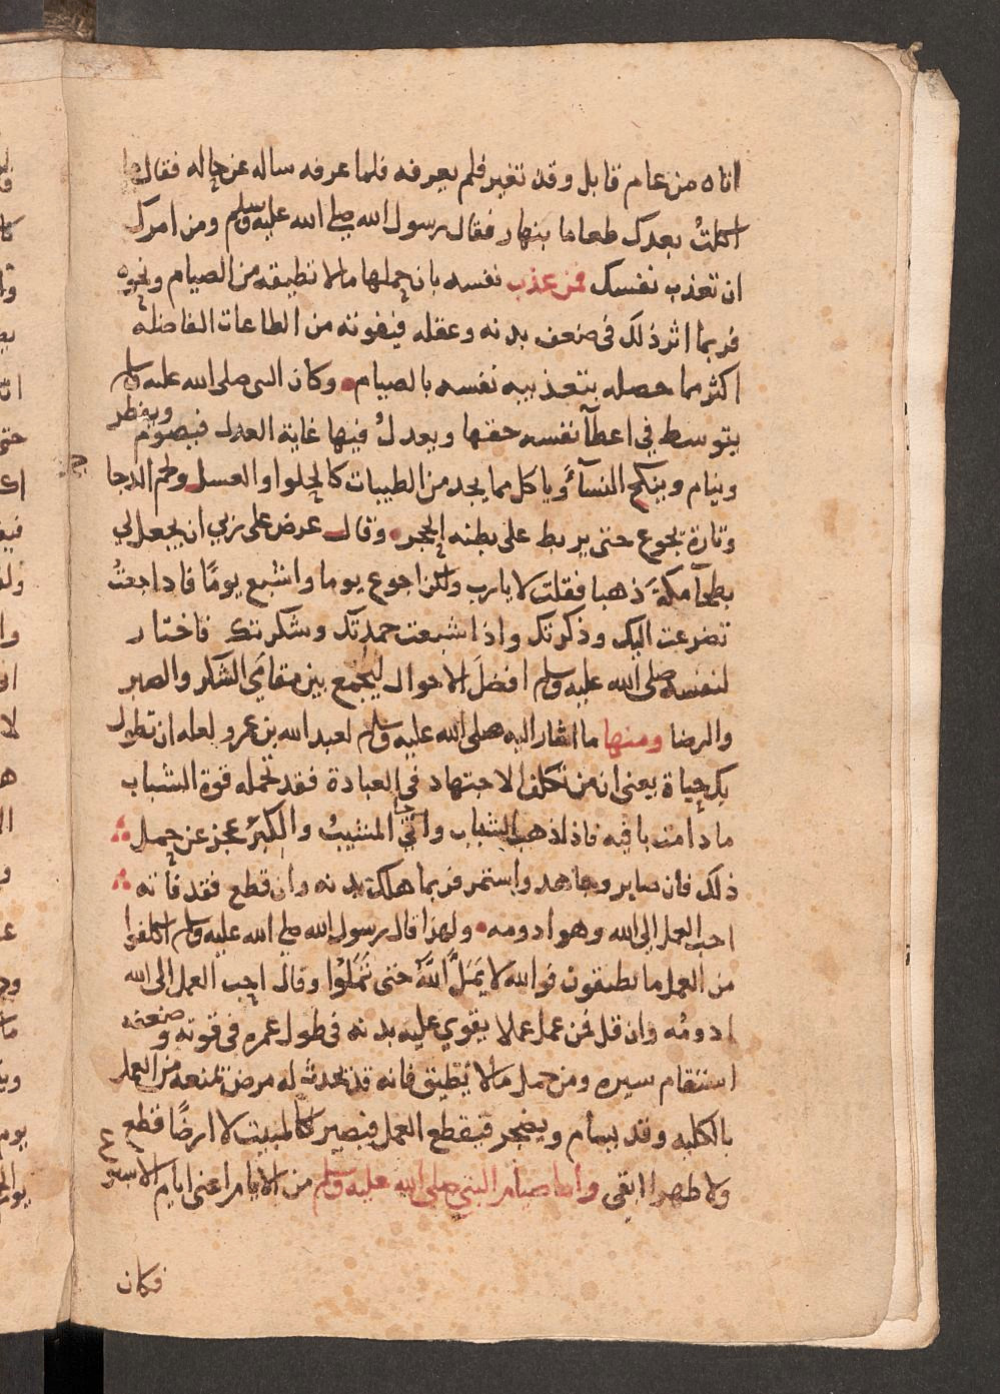 اتاه من عام قابل وقد تغير فلم يعرفه فلما عرفه ساله عن حاله فقال ما
اكلتُ بعدك طعاما بنهار فقال رسول الله صلى الله عليه وسلم ومن امرك
ان تعذب نفسك فمن عذب نفسه بان حملها مالا تطيقه من الصيام ونحوه
فربما اثر ذلك في ضعف بدنه وعقله فيفوته من الطاعات الفاضلة
اكثر مما حصله بتعذيبه نفسه بالصيام وكان النبى صلى الله عليه وسلم
يتوسط في اعطآ نفسه حقها ويعدلُ فيها غاية العدل فيصوم ويفطر
وينام وينكح النسآء وياكل مما يجد من الطيبات كالحلوا والعسل ولحم الدجاج
وتارة يجوع حتى يربط على بطنه الحجر وقال عرض على ربي ان يجعل لي
بطحآ مكةَ ذهبا فقلت لا يارب ولكن اجوع يوما واشبع يومًا فاذا جعتُ
تضرعت اليك وذكرتك واذا شبعت حمدتك وشكرتك فاختار
لنفسه صلى الله عليه وسلم افضل الاحوال ليجمع بين مقامَي الشكر والصبر
والرضا ومنها ما اشار اليه صلى الله عليه وسلم لعبد الله بن عمرو لعله ان تطول
بك حياة يعنى ان من تكلف الاجتهاد في العبادة فقد تحمله قوة الشباب
ما دامت باقيه فاذا ذهب الشباب واتي المشيبُ والكبرُ عجز عن حمل
ذلك فان صابر وجاهد واستمر فربما هلك بدنه وان قطع فقد فاته
احب العمل الى الله وهو ادومه ولهذا قال رسول الله صلى الله عليه وسلم اكلفوا
من العمل ما تطيقون فوالله لا يَمَلُّ اللهُ حتى تَمَلُّوا وقال احب العمل الى الله
ادومُه وان قل فمن عمل عملا يقوي عليه بدنه في طول عمره في قوته وضعفه
استقام سيره ومن حمل مالا يُطيق فانه قد يحدث له مرض تمنعه من العمل
بالكليه وقد يسأم ويضجر فيقطع العمل فيصير كالمبيت لا ارضًا قطع
ولا ظهرا ابقى واما صيام النبي صلى الله عليه وسلم من الايام اعنى ايام الاسبوع
فكان